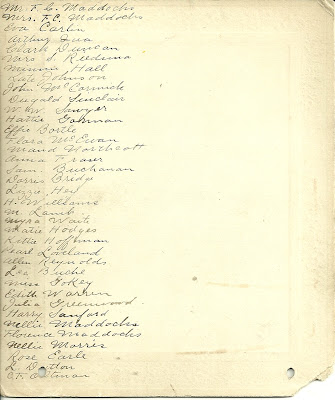 Mr. F. C. Maddocks
Mrs. F. C. Maddocks
Eva Carlin
Arthur
Clark Duncan
Mrs S.
Minnie Hall
Kate Johnson
John McCormick
Dugald Sinclair
W. W. Sawyer
Hattie Gohman
Effie Bortle
Flora McEwan
Maud Northcott
Anna Fraser
Sam. Buchanan
Dorris Bridge
Lizzie Hey
H. Williams
M. Lamb
Myra Waite
Matie Hodges
Katie Hoffman
Pearl Loveland
Allen Reynolds
Lea Buche
Miss Tokey
Edith Warren
Julia Greenwood
Harry Sanford
Nellie Maddocks
Florence Maddocks
Nellie Morris
Rose Earle
L. Dutton